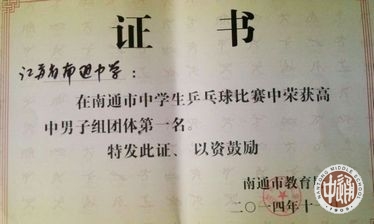 证 书
江苏省南通中学：
在南通市中学生乒乓球比赛中荣获高
中男子组团体第一名。
特发此证、以资鼓励
南通市教育
二〇一四年十
中通
NANTONG MIDDLE SCHOOL
1909